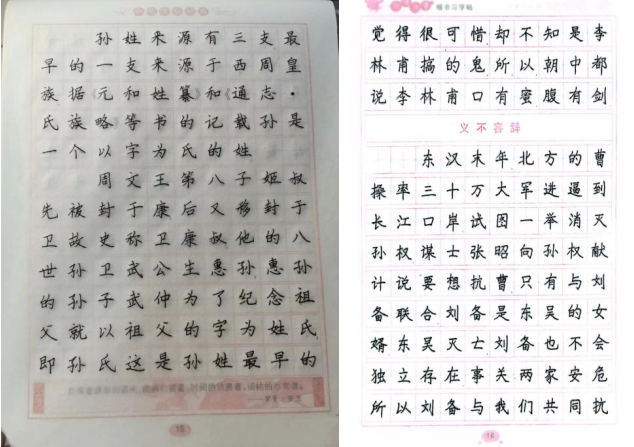 孙姓来源有三支最
早的一支来源于西周皇
族据《元和姓纂》和《通志·
氏族略》等书的记载孙是
一个以字为氏的姓
周文王第八子姬叔
先被封于康后又移封于
卫故史称卫康叔他的八
世孙卫武公生惠孙惠孙
的孙子武仲为了纪念祖
父就以祖父的字为姓氏
即孙氏这是孙姓最早的
15
楷书习字帖
觉得很可惜却不知是李
林甫搞的鬼所以朝中都
说李林甫口有蜜腹有剑
义不容辞
东汉末年北方的曹
操率三十万大军进逼到
长江口岸试图一举消灭
孙权谋士张昭向孙权献
计说要想抗曹只有与刘
备联合刘备是东吴的女
婿东吴灭亡刘备也不会
独立存在事关两家安危
所以刘备与我们共同抗
16